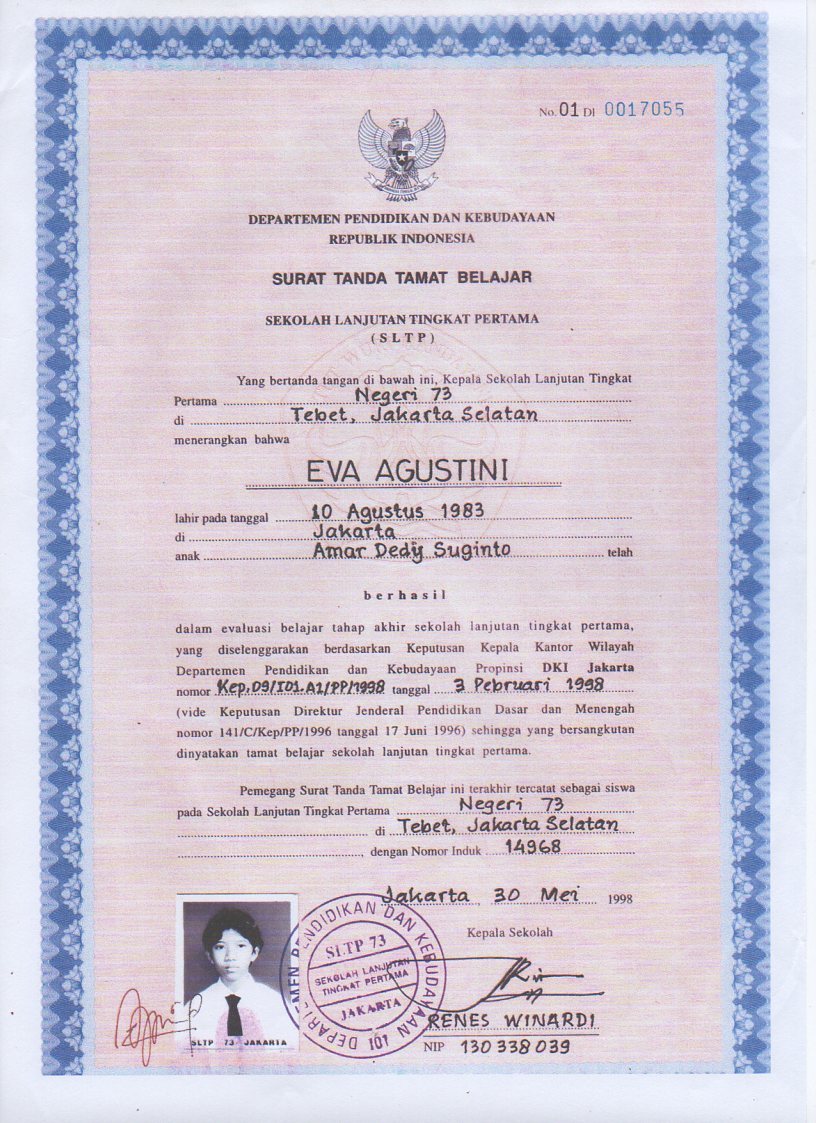 No. 01 DI 0017055
DEPARTEMEN PENDIDIKAN DAN KEBUDAYAAN
REPUBLIK INDONESIA
SURAT TANDA TAMAT BELAJAR
SEKOLAH LANJUTAN TINGKAT PERTAMA
( S L T P )
Yang bertanda tangan di bawah ini, Kepala Sekolah Lanjutan Tingkat
Pertama Negeri 73
di Tebet, Jakarta Selatan
menerangkan bahwa
EVA AGUSTINI
lahir pada tanggal 10 Agustus 1983
di Jakarta
anak Amar Dedy Suginto telah
berhasil
dalam evaluasi belajar tahap akhir sekolah lanjutan tingkat pertama,
yang diselenggarakan berdasarkan Keputusan Kepala Kantor Wilayah
Departemen Pendidikan dan Kebudayaan Propinsi DKI Jakarta
nomor Kep.09/I01.A1/PP/1998 tanggal 3 Pebruari 1998
(vide Keputusan Direktur Jenderal Pendidikan Dasar dan Menengah
nomor 141/C/Kep/PP/1996 tanggal 17 Juni 1996) sehingga yang bersangkutan
dinyatakan tamat belajar sekolah lanjutan tingkat pertama.
Pemegang Surat Tanda Tamat Belajar ini terakhir tercatat sebagai siswa
pada Sekolah Lanjutan Tingkat Pertama Negeri 73
di Tebet, Jakarta Selatan
, dengan Nomor Induk 14968
Jakarta, 30 Mei 1998
Kepala Sekolah
DEPARTEMEN PENDIDIKAN DAN KEBUDAYAAN
SLTP 73
SEKOLAH LANJUTAN
TINGKAT PERTAMA
JAKARTA
101
RENES WINARDI
NIP 130338039
SLTP 73 JAKARTA